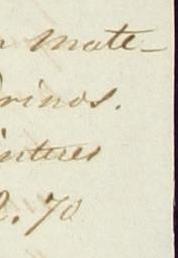 n mate-
rinos.
intures
2. 70